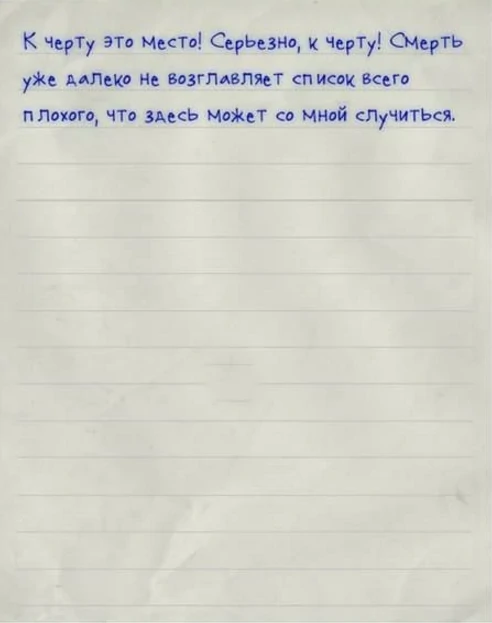 К черту это место! Серьезно, к черту! Смерть
уже далеко не возглавляет список всего
плохого, что здесь может со мной случиться.